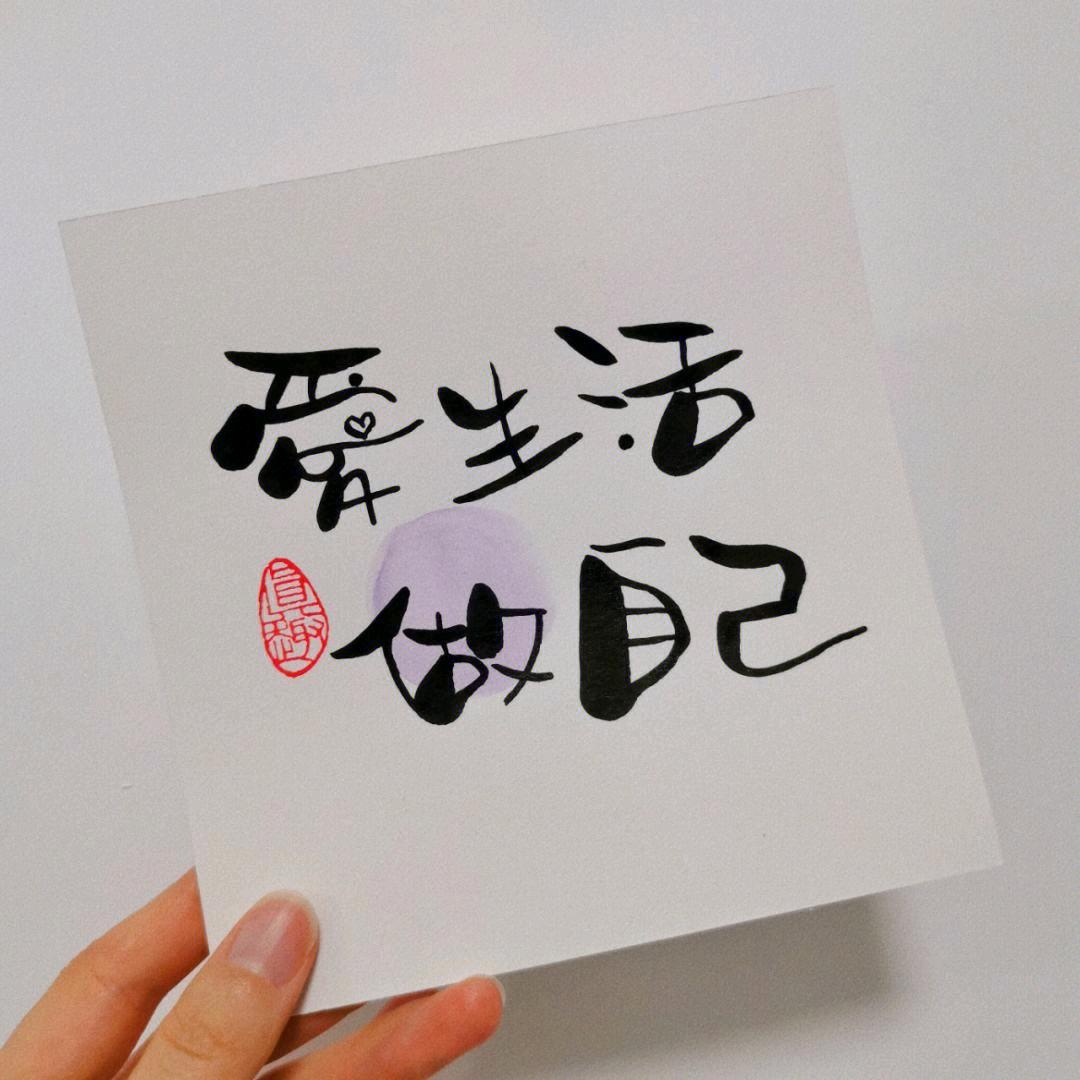 愛生活
做自己